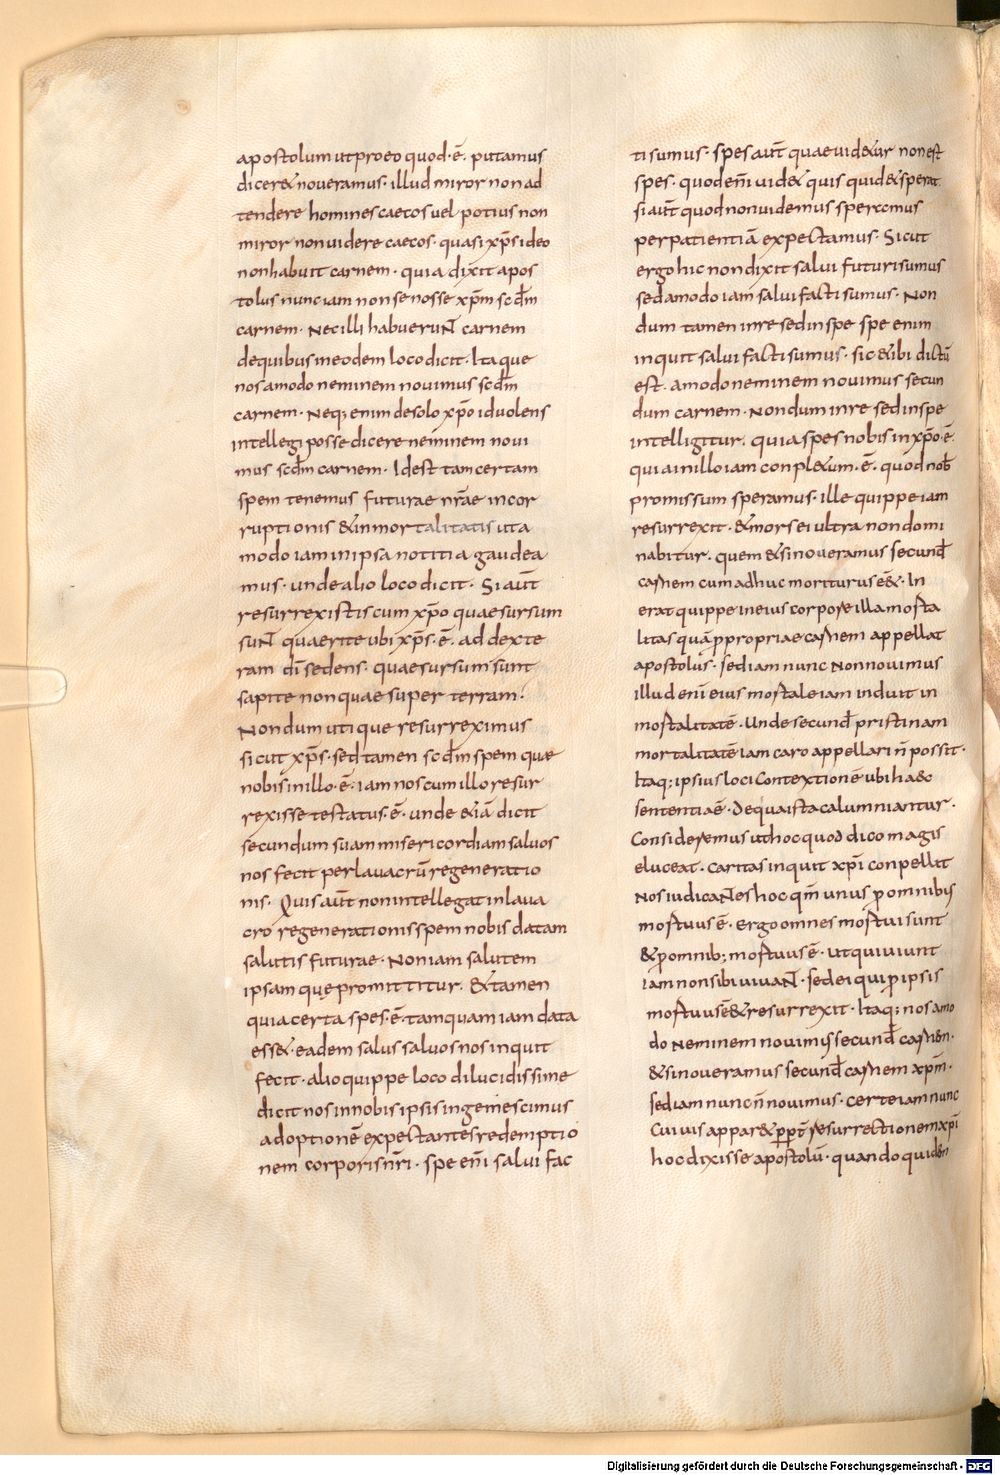 apostolum ut pro eo quod · ē · putamus
dicere & noueramus · illud miror non ad
tendere homines caecos uel potius non
miror non uidere caecos · quasi xp̄s ideo
non habuit carnem · quia dixit apos
tolus nunc iam non se nosse xp̄m scd̄m
carnem · Nec illi habuerunt carnem
de quibus in eodem loco dicit · Itaque
nos amodo neminem nouimus scd̄m
carnem · Neq; enim de solo xp̄o id uolens
intellegi posse dicere neminem noui
mus scd̄m carnem · Id est tam certam
spem tenemus futurae nr̄ae incor
ruptionis & inmortalitatis uta
modo iam in ipsa notitia gaudea
mus · unde alio loco dicit · Si aut̄
resurrexistis cum xp̄o quae sursum
sunt quaerite ubi xp̄s · ē · ad dexte
ram dī sedens · quae sursum sunt
sapite non quae super terram ·
Nondum utique resurreximus
sicut xp̄s · sed tamen scd̄m spem que
nobis in illo · ē · iam nos cum illo resur
rexisse testatus · ē · unde & iā dicit
secundum suam misericordiam saluos
nos fecit per lauacrū regeneratio
nis · Quis aut̄ non intellegat in laua
cro regenerationis spem nobis datam
salutis futurae · Non iam salutem
ipsam quę promittitur · & tamen
quia certa spes · ē · tamquam iam data
ess& · eadem salus saluos nos inquit
fecit · alio quippe loco dilucidissime
dicit nos in nobis ipsis ingemescimus
adoptionē expectantes redemptio
nem corporis nr̄i · spe enī salui fac
ti sumus · spes aut̄ quae uid&ur non est
spes · quod enī uid& quis quid & sperat
si aut̄ quod non uidemus speramus
per patientiā expectamus · Sicut
ergo hic non dixit salui futuri sumus
sed amodo iam salui facti sumus · Non
dum tamen in re sed in spe spe enim
inquit salui facti sumus · sic & ibi dictū
est · amodo neminem nouimus secun
dum carnem · Nondum in re sed in spe
intelligitur · quia spes nobis in xp̄o · ē ·
quia in illo iam conpl&um · ē · quod nob̄
promissum speramus · ille quippe iam
resurrexit · & mors ei ultra non domi
nabitur · quem & si noueramus secund̄
carnem cum adhuc moriturus e&· In
erat quippe in eius corpore illa morta
litas quā p propriae carnem appellat
apostolus · sed iam nunc Non nouimus
illud enī eius mortale iam induit in
mortalitatē · Unde secund̄ pristinam
mortalitatē iam caro appellari n̄ possit ·
Itaq; ipsius loci Contextionē ubi haec
sententiae · De qua ista calumniantur ·
Consideremus ut hoc quod dico magis
eluceat · caritas inquit xp̄i conpellit
Nos iudicantes hoc qm̄ unus p omnibus
mortuus ē · Ergo omnes mortui sunt
& p omnib; mortuus ē · ut qui uiuunt
iam non sibi uiuant · sed ei qui p ipsis
mortuus ē & resurrexit · Itaq; nos amo
do Neminem nouimus secund̄ carnen ·
& si noueramus secund̄ carnem xp̄m ·
sed iam nunc n̄ nouimus · certe iam nunc
Cui uis appar& resurrectionem xp̄i
hoc dixisse apostolū · quando quiden
Digitalisierung gefördert durch die Deutsche Forschungsgemeinschaft - DFG